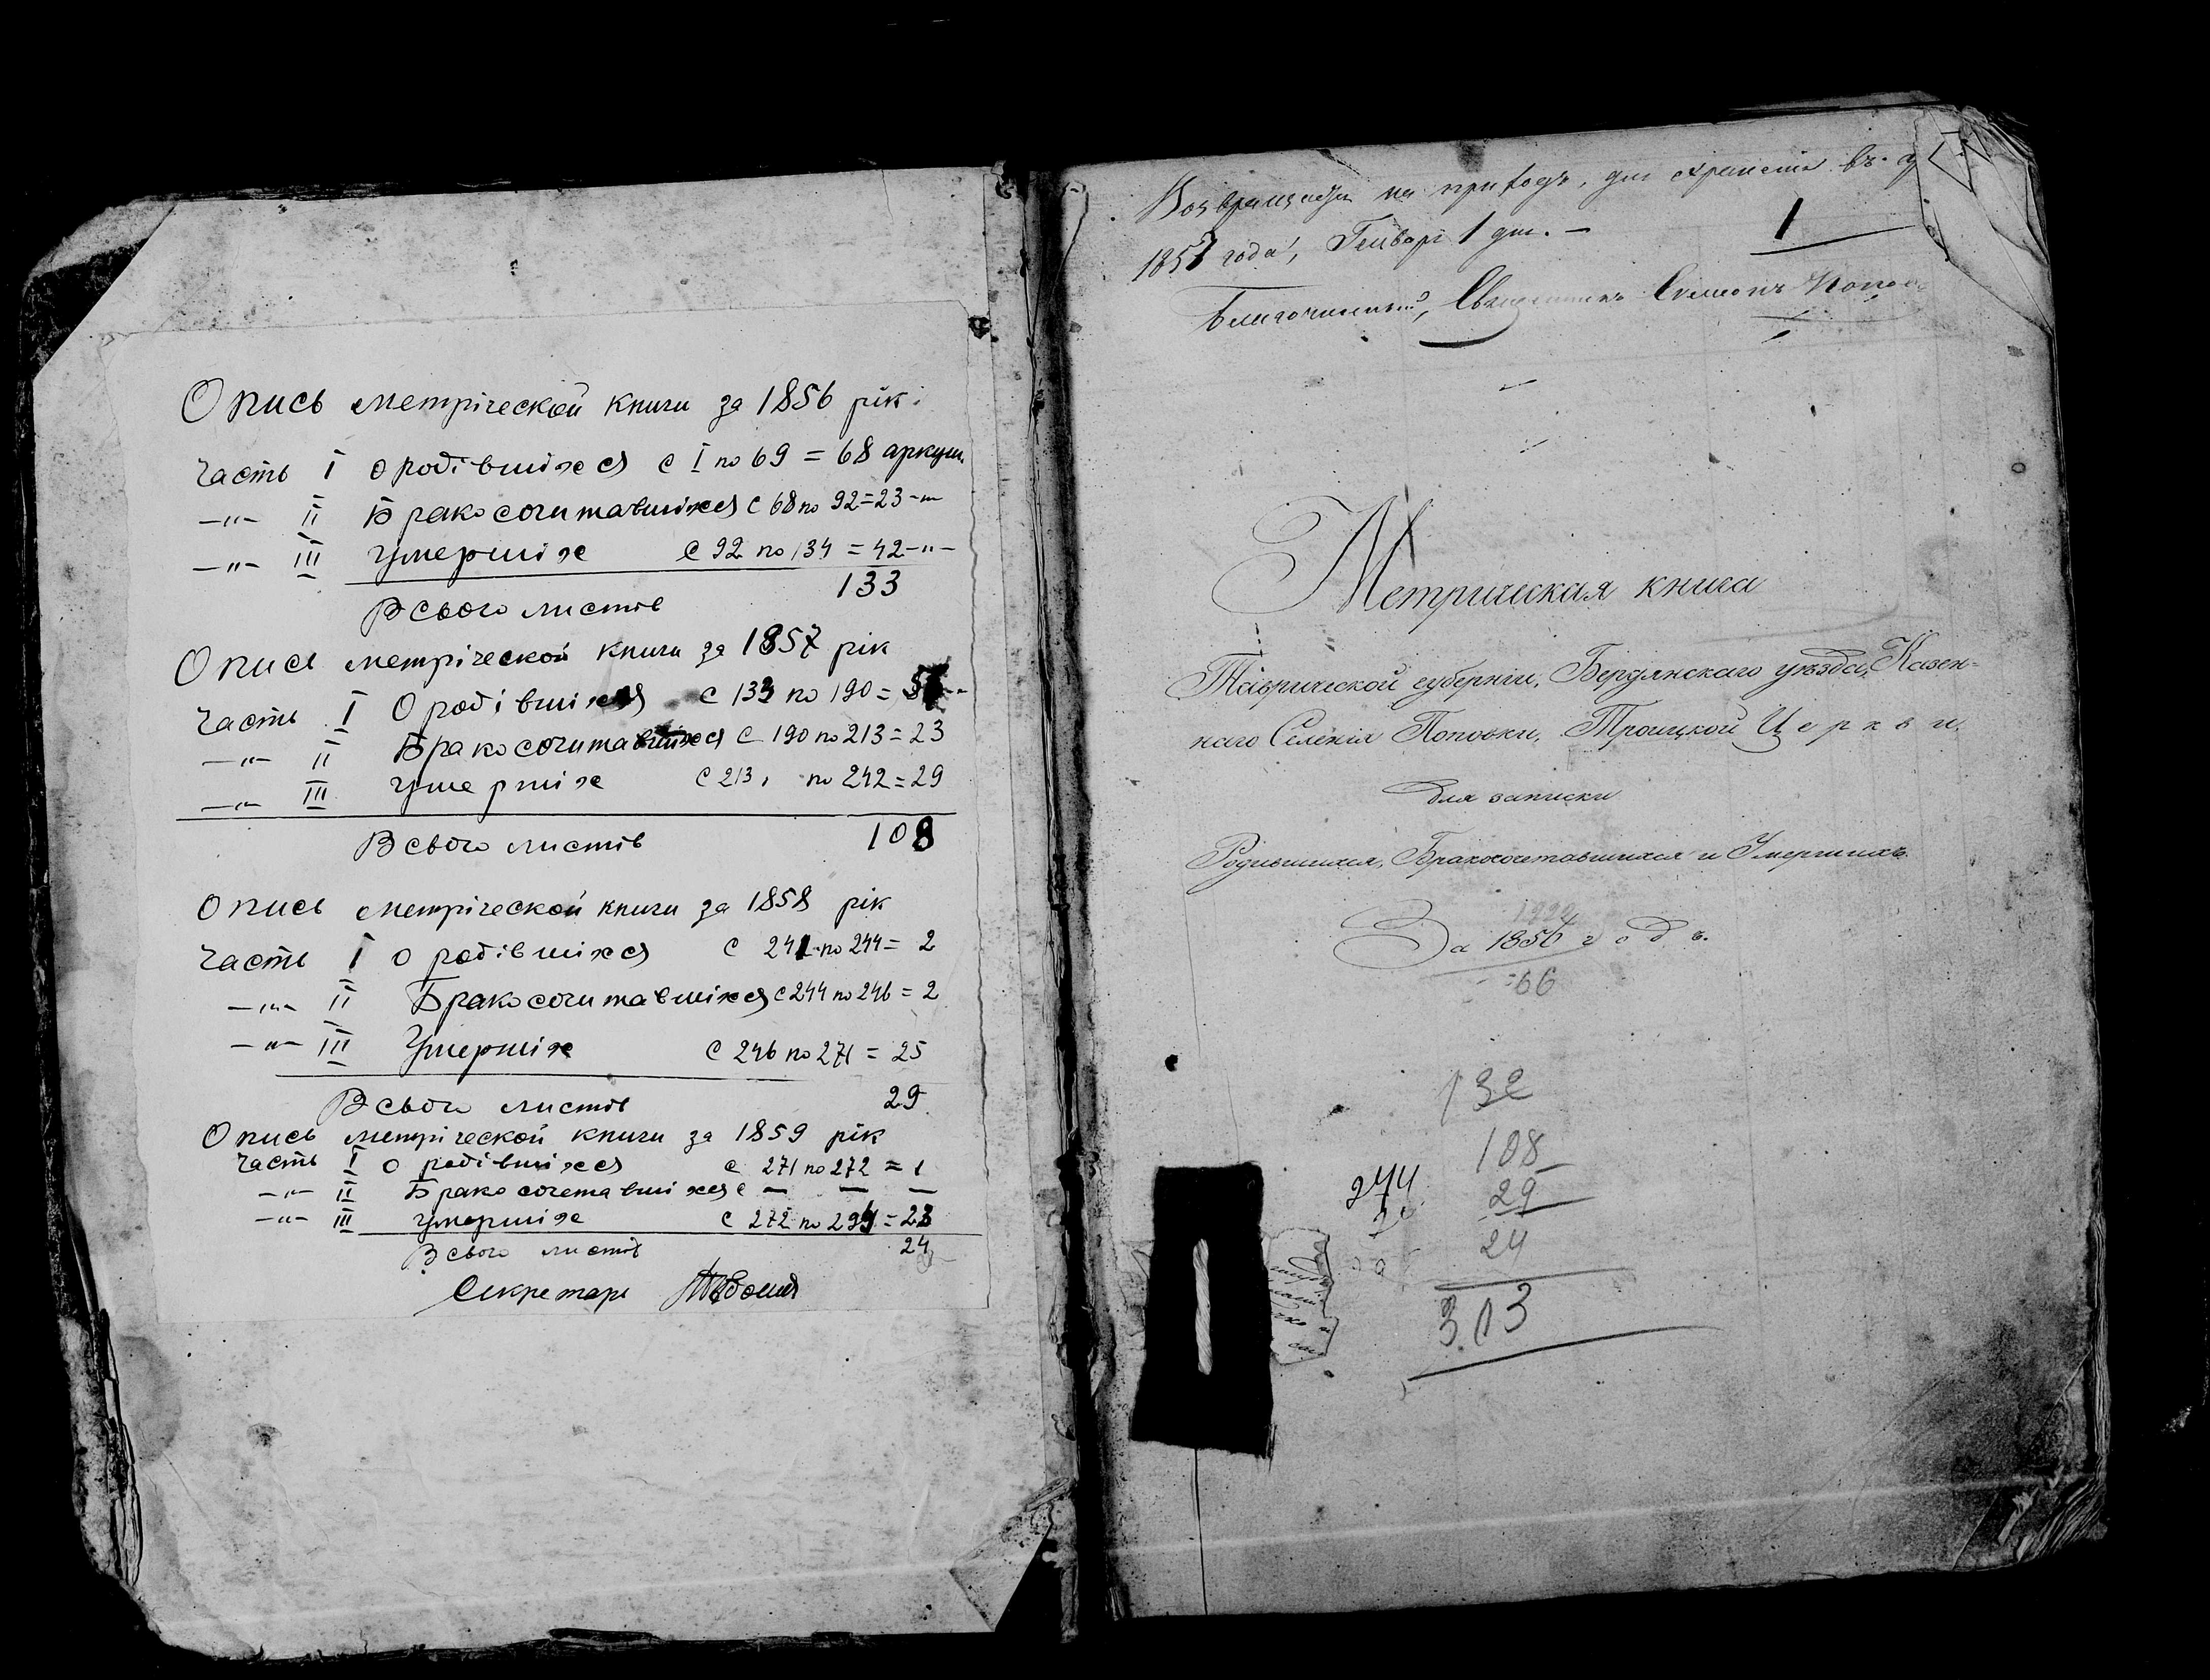 Опись метріческой книги за 1856 рік:
Часть I о родівшіхся с I по 69 = 68 аркуш.
—"— II Бракосочитавшіхся с 68 по 92 = 23 —"—
—"— III Умершіх с 92 по 134 = 42 —"—
Всього листів 133
Опись метріческой книги за 1857 рік
Часть I О родівшіхся с 133 по 190 =
—"— II Бракосочитавшіхся с 190 по 213 = 23
—"— III Умершіх с 213 по 242 = 29
Всього листів 108
Опись метріческой книги за 1858 рік
Часть I о родівшіхся с 241 по 244 = 2
—"— II Бракосочитавшіхся с 244 по 246 = 2
—"— III Умершіх с 246 по 271 = 25
Всього листів 29
Опись метріческой книги за 1859 рік
Часть I о родівшіхся с 271 по 272 = 1
—"— II Бракосочетавшіхся с — — —
—"— III Умершіх с 272 по 294 = 23
Всього листів 24
Секретарь
на приходъ, для храненія въ
1857 года, Генваря 1 дня. —
1
Благочинный, Священникъ Симеонъ
Метрическая книга
Таврической губерніи, Бердянскаго уѣзда, Казен=
наго Селенія Поповки, Троицкой Церкви,
для записки
Родившихся, Бракосочетавшихся и Умершихъ
За 1856 годъ.
66
132
108
244
29
24
313